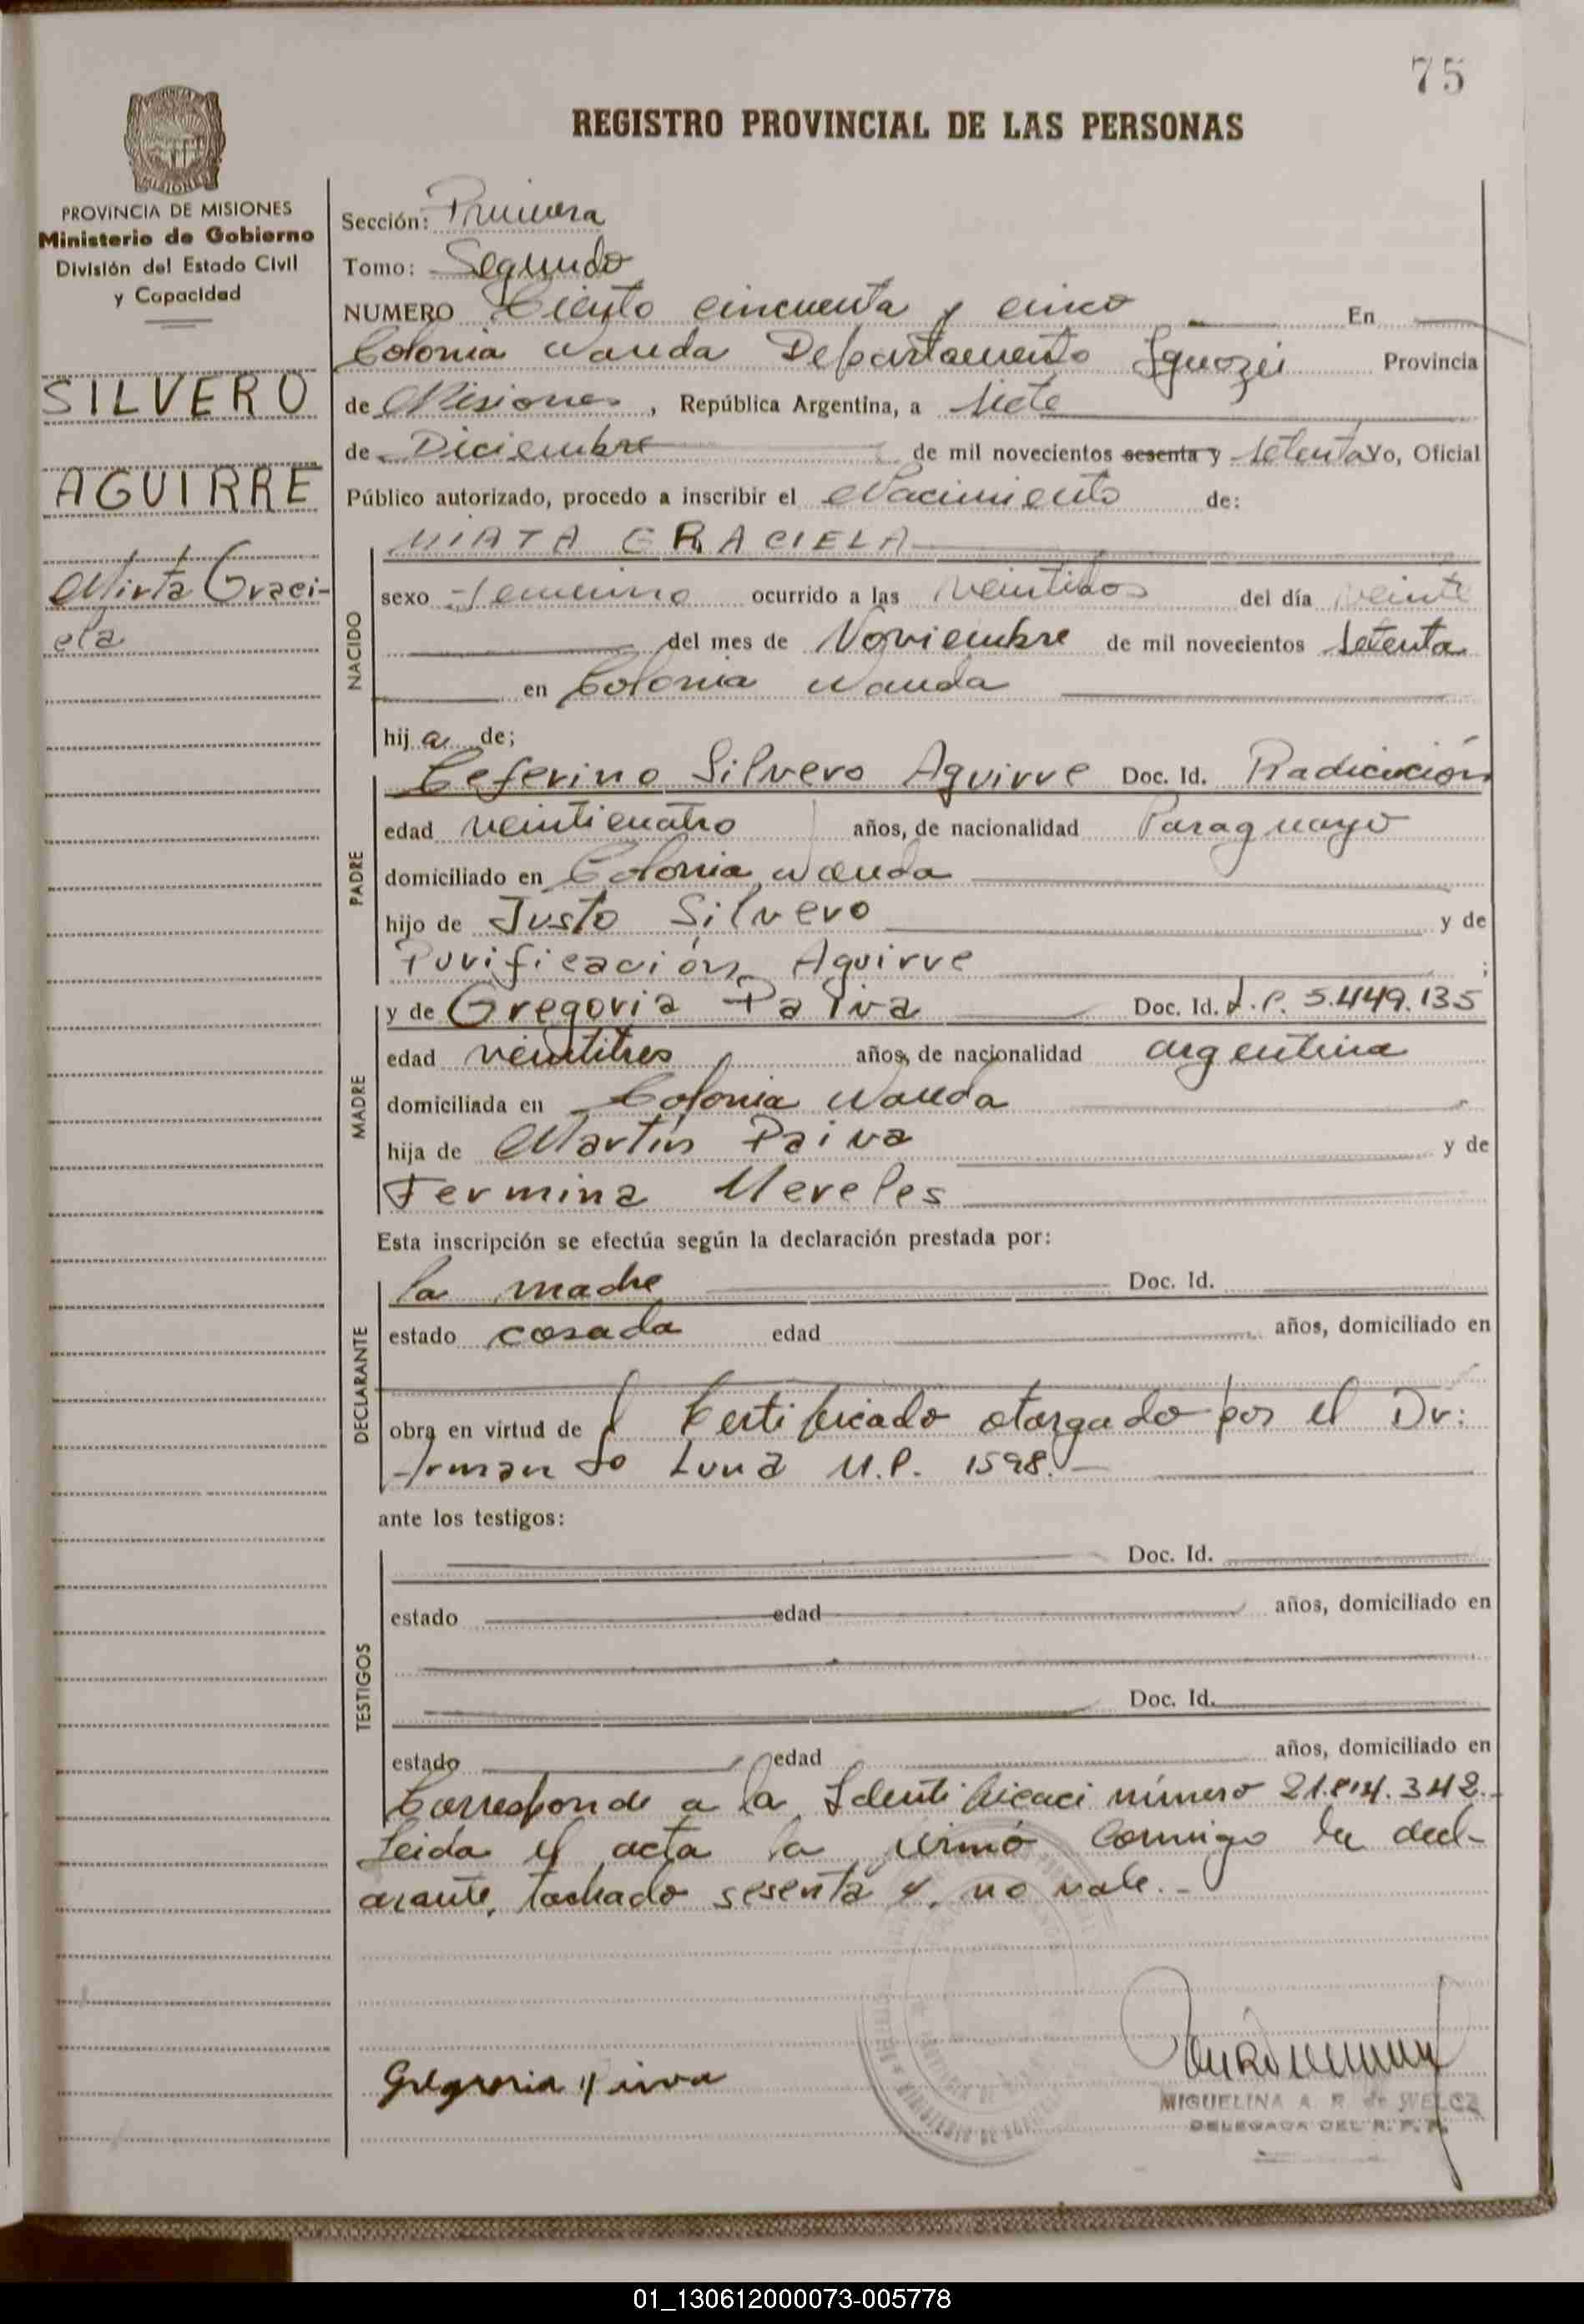 75
REGISTRO PROVINCIAL DE LAS PERSONAS
MISIONES
PROVINCIA DE MISIONES
Ministerio de Gobierno
División del Estado Civil
y Capacidad
SILVERO
AGUIRRE
Mirta Graci-
ela
Sección: Primera
Tomo: Segundo
NUMERO Ciento cincuenta y cinco En
Colonia Wanda Departamento Iguazú Provincia
de Misiones, República Argentina, a siete
de Diciembre de mil novecientos sesenta y setenta Yo, Oficial
Público autorizado, procedo a inscribir el Nacimiento de:
NACIDO
MIRTA GRACIELA
sexo femenino ocurrido a las veintidos del día veinte
del mes de Noviembre de mil novecientos setenta
en Colonia Wanda
hija de;
PADRE
Ceferino Silvero Aguirre Doc. Id. Radicición
edad veinticuatro años, de nacionalidad Paraguayo
domiciliado en Colonia Wanda
hijo de Justo Silvero y de
Purificación Aguirre ;
MADRE
y de Gregoria Paiva Doc. Id. L.C. 5.449.135
edad veintitres años, de nacionalidad argentina
domiciliada en Colonia Wanda
hija de Martín Paiva y de
Fermina Mereles
Esta inscripción se efectúa según la declaración prestada por:
DECLARANTE
la madre Doc. Id.
estado casada edad años, domiciliado en
obra en virtud de Certificado otorgado por el Dr:
Armando Luna M.P. 1598.-
ante los testigos:
TESTIGOS
Doc. Id.
estado edad años, domiciliado en
Doc. Id.
estado edad años, domiciliado en
Corresponde a la Identificaci número 21.814.342.-
Leida el acta la firmó conmigo la decl-
arante, tachado sesenta y, no vale.-
Gregoria Paiva
MIGUELINA A. R. de WELCZ
DELEGADA DEL R. P. P.
01_130612000073-005778